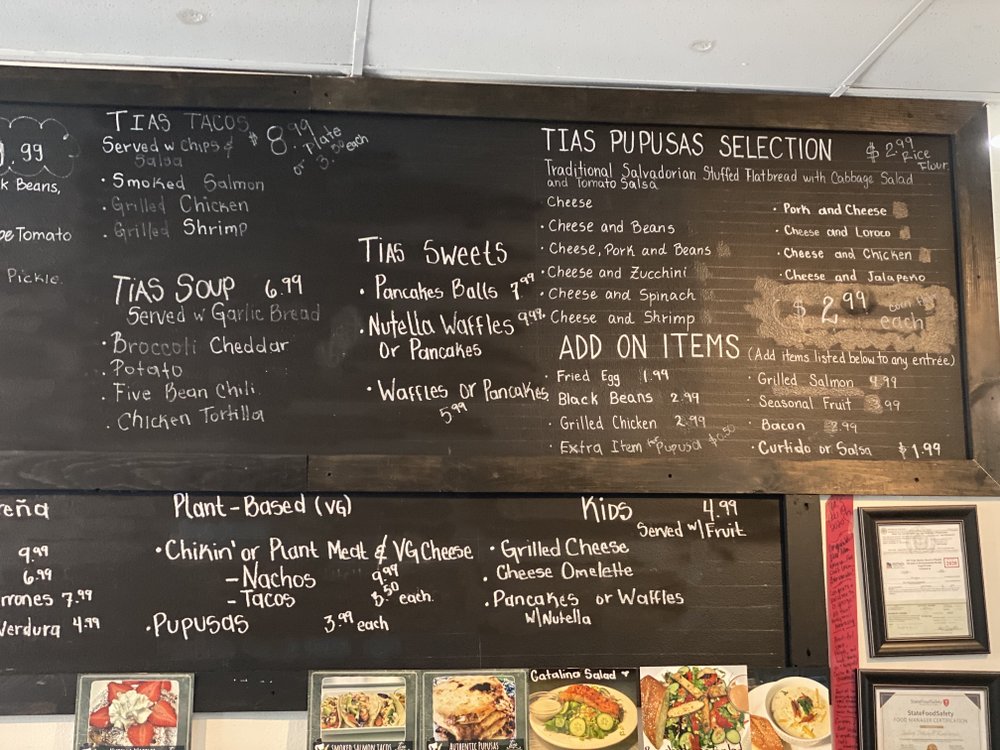 9.99
k Beans,
Tomato
Pickle.
TIAS TACOS $8.99
Served w chips & or Plate
Salsa 3.50 each
· Smoked Salmon
· Grilled Chicken
· Grilled Shrimp
TIAS SOUP 6.99
Served w Garlic Bread
· Broccoli Cheddar
· Potato
· Five Bean Chili
· Chicken Tortilla
TIAS Sweets
· Pancakes Balls 7.99
· Nutella Waffles 9.99
Or Pancakes
· Waffles or Pancakes
5.99
TIAS PUPUSAS SELECTION $2.99
Rice
Flour
Traditional Salvadorian Stuffed Flatbread with Cabbage Salad
and Tomato Salsa
Cheese
· Cheese and Beans
· Cheese, Pork and Beans
· Cheese and Zucchini
· Cheese and Spinach
· Cheese and Shrimp
· Pork and Cheese
· Cheese and Loroco
· Cheese and Chicken
· Cheese and Jalapeño
$2.99 corn
each
ADD ON ITEMS (Add items listed below to any entrée)
· Fried Egg 1.99
Black Beans 2.99
· Grilled Chicken 2.99
· Extra Item Pupusa $0.50
· Grilled Salmon 4.99
· Seasonal Fruit 3.99
· Bacon
· Curtido or Salsa $1.99
eña
9.99
6.99
rrones 7.99
Verdura 4.99
Plant-Based (VG)
· Chikin' or Plant Meat & VG Cheese
- Nachos 9.99
- Tacos 3.50 each.
· Pupusas 3.99 each
Kids 4.99
Served w/ Fruit
· Grilled Cheese
· Cheese Omelette
· Pancakes or Waffles
w/Nutella
SMOKED SALMON TACOS
AUTHENTIC PUPUSAS
Catalina Salad
StateFoodSafety
FOOD MANAGER CERTIFICATION